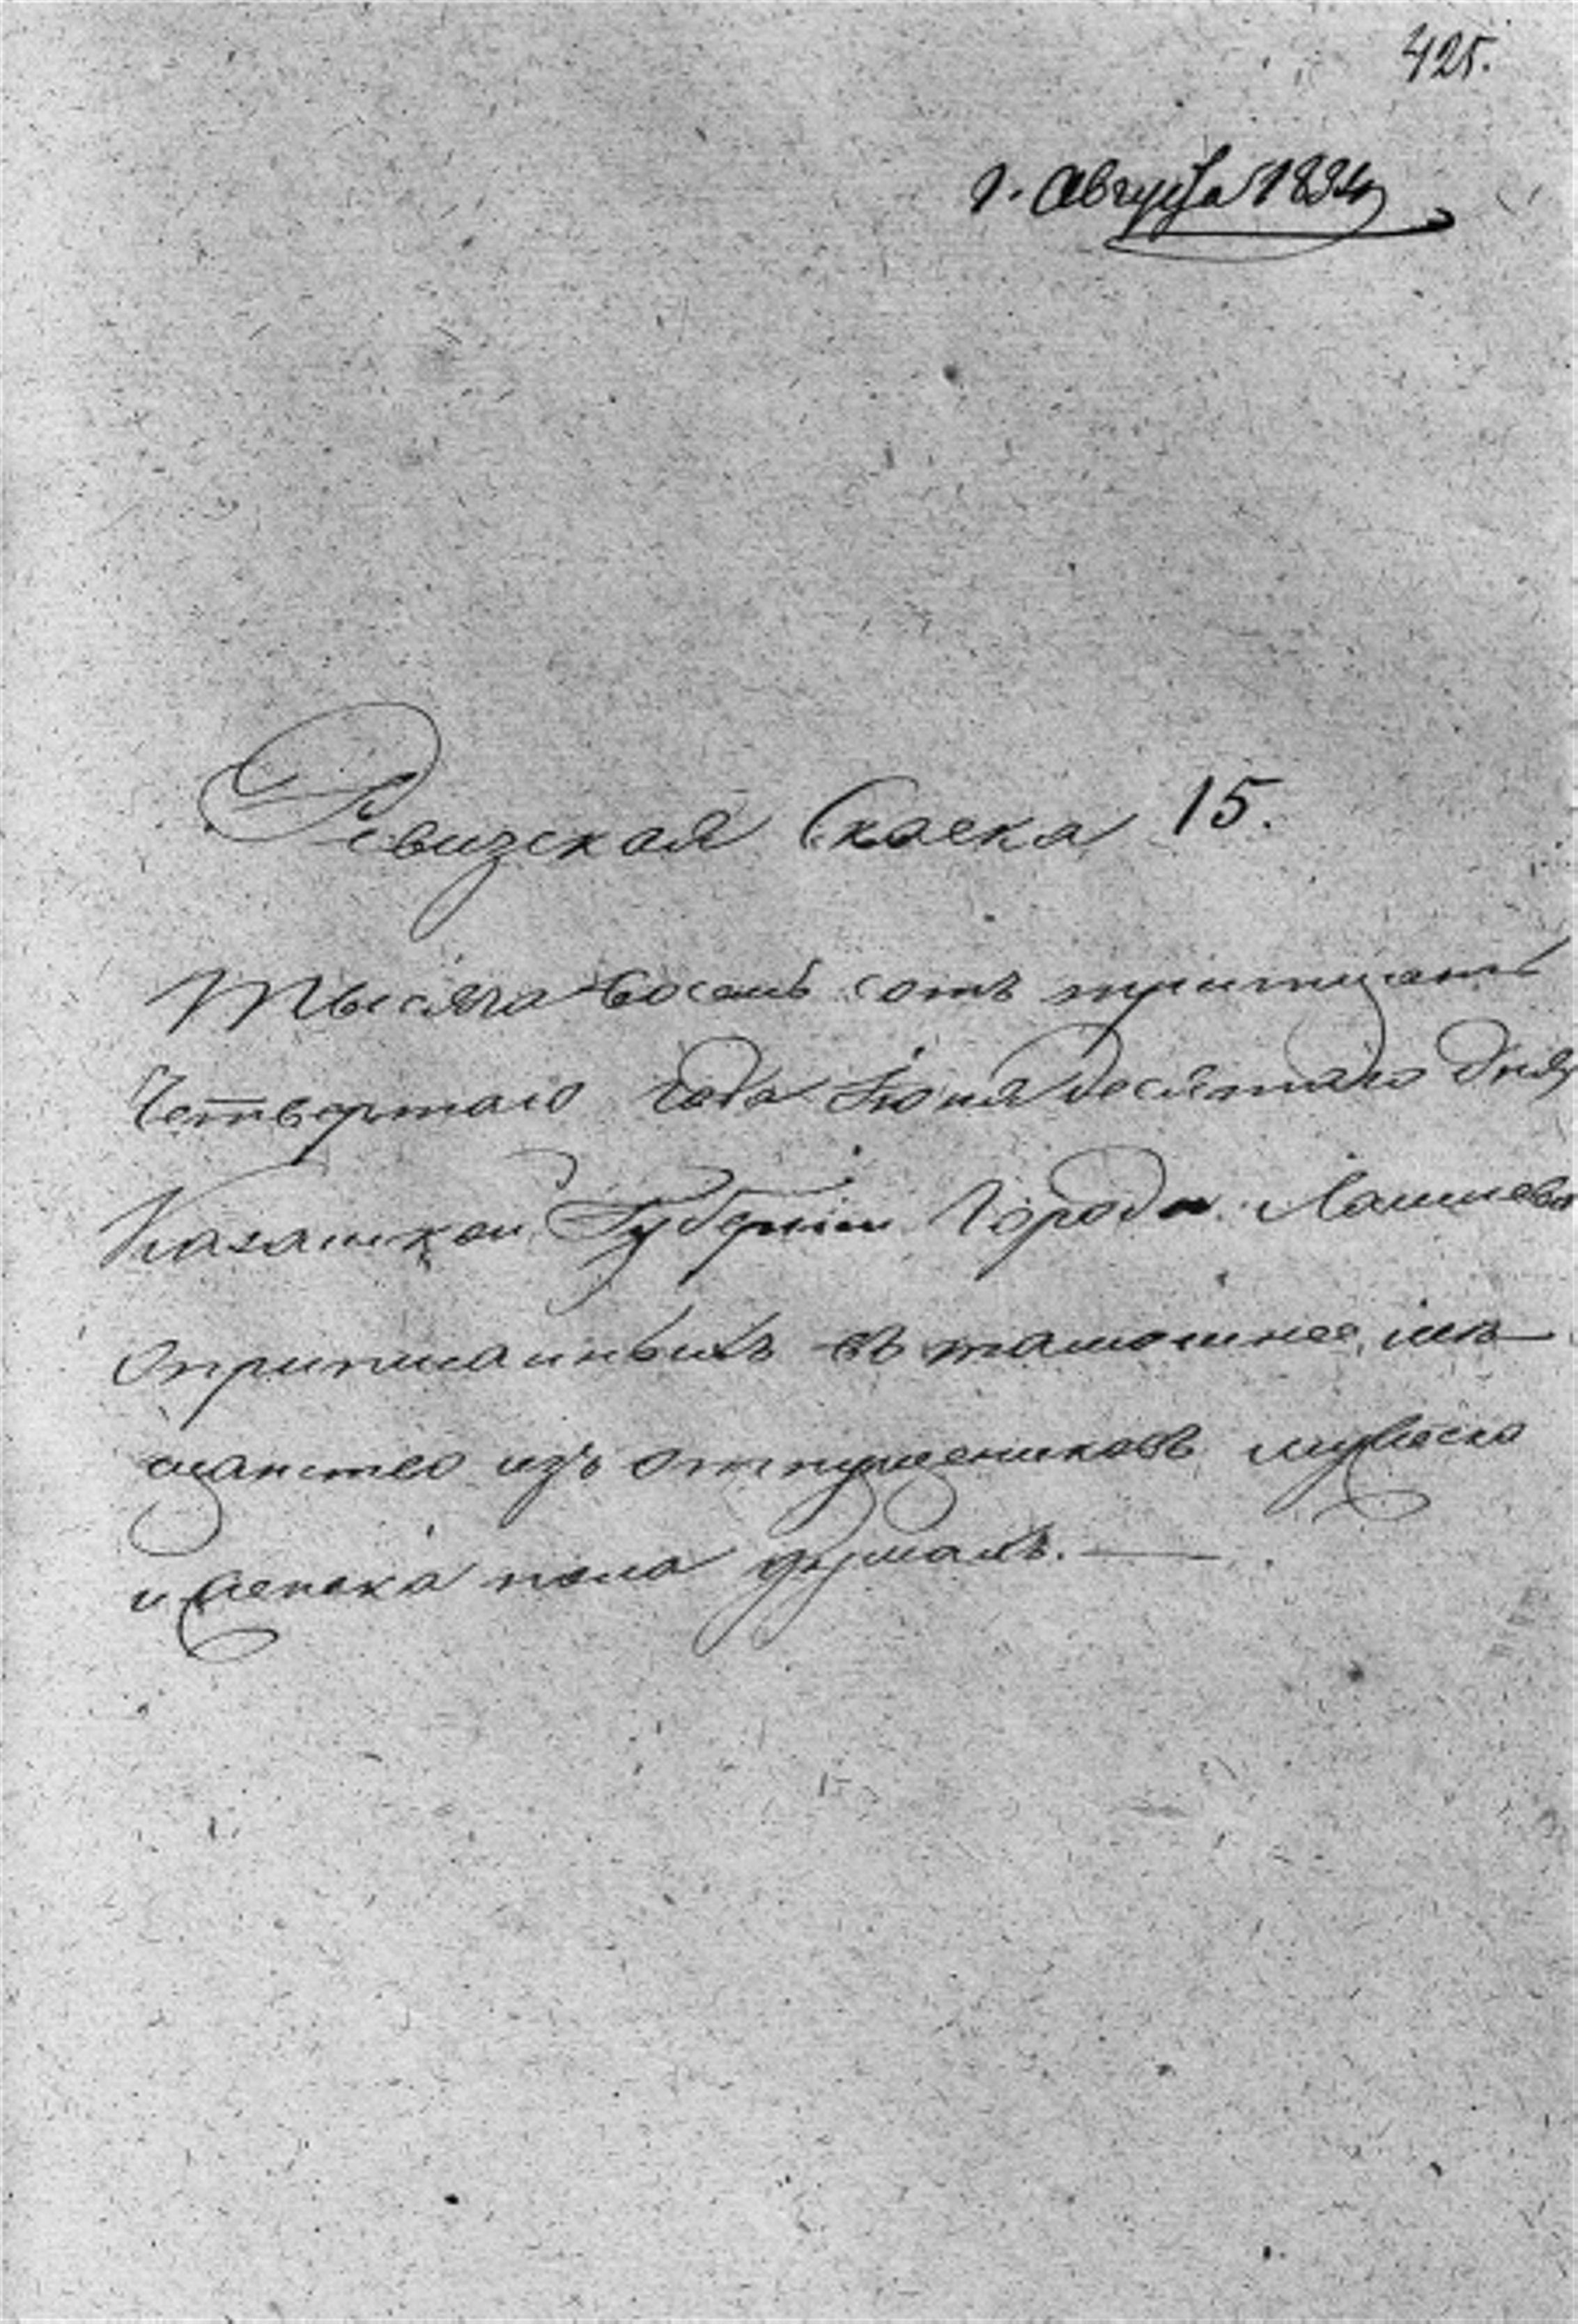 425.
1. Августа 1834
Ревизская Скаска 15.
Тысяча восемь сотъ тритцать
Четвертаго года Іюня десятаго дня
Казанской Губерніи Города Лаишева
Оприписанныхъ въ тамошнее мѣ
щанство изъ отпущениковъ мужеска
и женска пола душахъ.